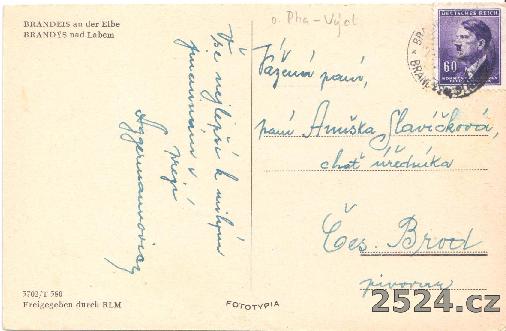 BRANDEIS an der Elbe
BRANDÝS nad Labem
o. Pha-Východ
DEUTSCHES REICH
60
Vše nejlepší k milým
jmeninám v
přejí
Aggermannovic
Vážená paní,
paní Amiška Slavíčková,
choť úředníka
Čes. Brod
pivovar
5702/T 588
Freigegeben durch RLM
FOTOTYPIA
2524.cz